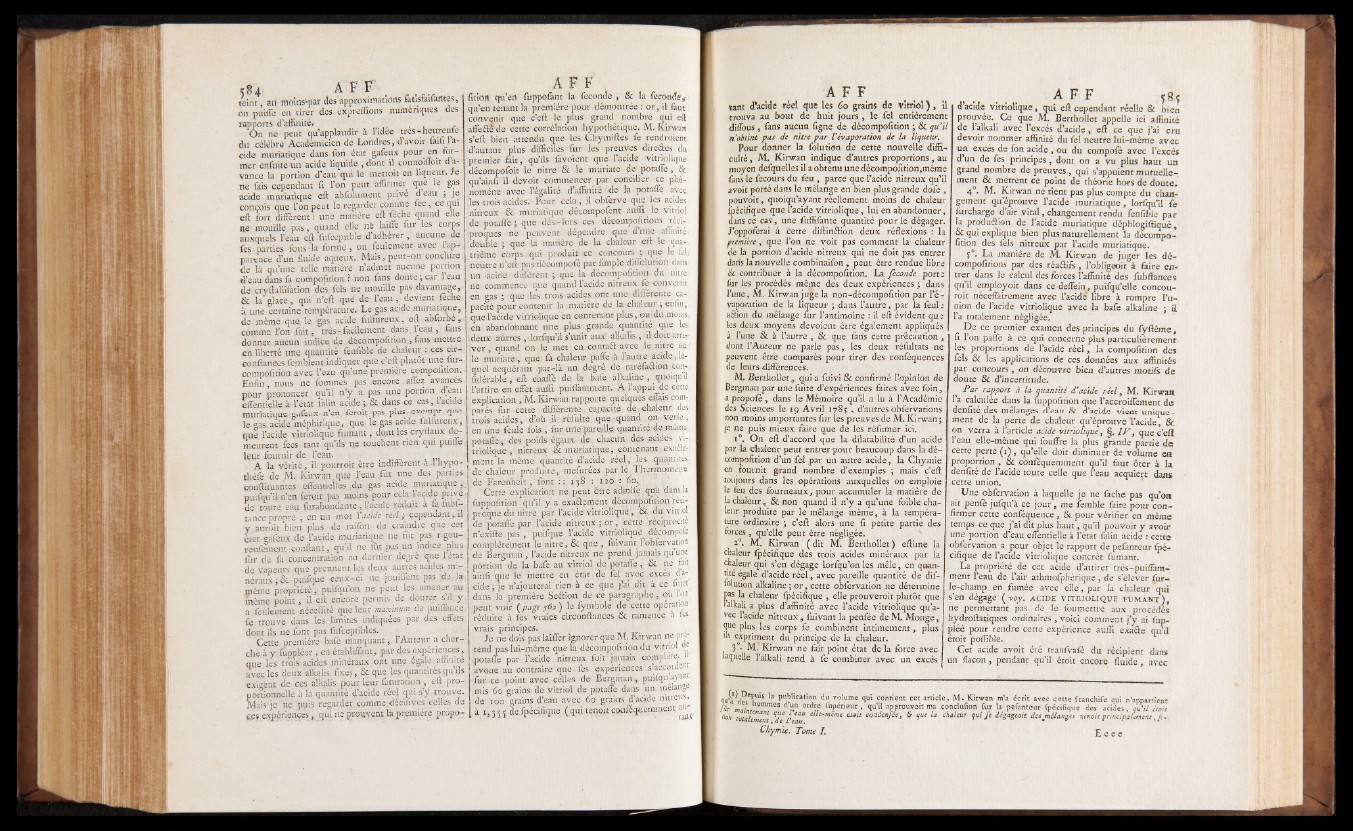 584 A F F
teint, au moins par des approximations satisfaisantes,
on puisse en tirer des expressions numériques des
rapports d'affinité.
On ne peut qu'applaudir à l'idée très-heureuse
du célèbre Académicien de Londres, d'avoir saisi l'a-
cide muriatique dans son état gaseux pour en for-
mer ensuite un acide liquide, dont il connoissoit d'a-
vance la portion d'eau qui le mettoit en liqueur. Je
ne sais cependant si l'on peut affirmer que le gas
acide muriatique est absolument privé d'eau ; je
conçois que l'on peut le regarder comme sec, ce qui
est fort différent : une manière est sèche quand elle
ne mouille pas, quand elle ne laisse sur les corps
auxquels l'eau est susceptible d'adhérer, aucune de
ses parties sous la forme, ou seulement avec l'ap-
parence d'un fluide aqueux. Mais, peut-on conclure
de là qu'une telle matière n'admet aucune portion
d'eau dans sa composition ? non sans doute ; car l'eau
de crystallisation des sels ne mouille pas davantage,
& la glace, qui n'est que de l'eau, devient sèche
à une certaine température. Le gas acide muriatique,
de même que le gas acide sulfureux, est absorbé,
comme l'on sait, très-facilement dans l'eau, sans
donner aucun indice de décomposition, sans mettre
en liberté une quantité sensible de chaleur : ces cir-
constances semblent indiquer que c'est plutôt une sur-
composition avec l'eau qu'une première composition.
Enfin, nous ne sommes pas encore assez avancés
pour prononcer qu'il n'y a pas une portion d'eau
essentielle à l'état salin acide ; & dans ce cas, l'acide
muriatique gaseux n'en seroit pas plus exempt que
le gas acide méphitique, que le gas acide sulfureux,
que l'acide vitriolique fumant, dont les crystaux de-
meurent secs tant qu'ils ne touchent rien qui puisse
leur fournir de l'eau.
A la vérité, il pourroit être indifférent à l'hypo-
thèse de M. Kirwan que l'eau fût une des parties
constituantes essentielles du gas acide muriatique,
puisqu'il n'en seroit pas moins pour cela l'acide privé
de toute eau surabondante, l'acide réduit à sa subs-
tance propre, en un mot l'acide réel ; cependant, il
y auroit bien plus de raison de craindre que cet
état gaseux de l'acide muriatique ne fût pas rigou-
reusement constant, qu'il ne fût pas un indice plus
sûr de sa concentration au dernier degré que l'état
de vapeurs que prennent les deux autres acides mi-
néraux ; & puisque ceux-ci ne jouissent pas de la
même propriété, puisqu'on ne peut les amener au
même point, il est encore permis de douter s'il y
a seulement nécessité que leur maximum de puissance
se trouve dans les limites indiquées par des effets
dont ils ne sont pas susceptibles.
Cette première base manquant, l'Auteur a cher-
ché à y suppléer, en établissant, par des expériences,
que les trois acides minéraux ont une égale affinité
avec les deux alkalis fixes, & que les quantités qu'ils
exigent de ces alkalis pour leur saturation, est pro-
portionnelle à la quantité d'acide réel qui s'y trouve.
Mais je ne puis regarder comme décisives celles de
ces expériences, qui ne prouvent la première propo-
A F F
sition qu'en supposant la seconde, & la seconde,
qu'en tenant la première pour démontrée : or, il faut
convenir que c'est le plus grand nombre qui est
affecté de cette corrélation hypothétique. M. Kirwan
s'est bien attendu que les Chymistes se rendroient
d'autant plus difficiles sur les preuves directes du
premier fait, qu'ils savoient que l'acide vitriolique
décomposoit le nitre & le muriate de potasse, &
qu'ainsi il devoit commencer par concilier ce phé-
nomène avec l'égalité d'affinité de la potasse avec
les trois acides. Pour cela, il observe que les acides
nitreux & muriatique décomposent aussi le vitriol
de potasse ; que dès-lors ces décompositions réci-
proques ne peuvent dépendre que d'une affinité
double ; que la matière de la chaleur est le qua-
trième corps qui produit ce concours ; que le sel
neutre n'est pas décomposé par simple dissolution dans
un acide différent ; que la décomposition du nitre
ne commence que quand l'acide nitreux se convertit
en gas ; que les trois acides ont une différente ca-
pacité pour contenir la matière de la chaleur ; enfin,
que l'acide vitriolique en contenant plus, ou du moins,
en abandonnant une plus grande quantité que les
deux autres, lorsqu'il s'unit aux alkalis, il doit arri-
ver, quand on le met en contact avec le nitre ou
le muriate, que sa chaleur passe à l'autre acide, le-
quel acquérant par-là un degré de raréfaction con-
sidérable, est chassé de la base alkaline, quoiqu'il
l'attire en effet aussi puissamment. A l'appui de cette
explication, M. Kirwan rapporte quelques essais com-
parés sur cette différente capacité de chaleur des
trois acides, d'où il résulte que quand on verse,
en une seule fois, sur une pareille quantité de même
potasse, des poids égaux de chacun des acides vi-
triolique, nitreux & muriatique, contenant exacte-
ment la même quantité d'acide réel, les quantités
de chaleur produite, mesurées par le Thermomètre
de Farenheit, sont :: 138 : 120 : 60.
Cette explication ne peut être admise que dans la
supposition qu'il y a exactement décomposition réci-
proque du nitre par l'acide vitriolique, & du vitriol
de potasse par l'acide nitreux ; or, cette réciprocité
n'existe pas, puisque l'acide vitriolique décompose
complètement le nitre, & que, suivant l'observation
de Bergman, l'acide nitreux ne prend jamais qu'une
portion de la base au vitriol de potasse, & ne fait
ainsi que le mettre en état de sel avec excès d'a-
cide ; je n'ajouterai rien à ce que j'ai dit à ce sujet
dans la première Section de ce paragraphe, où l'on
peut voir (page 562) le symbole de cette opération
réduite à ses vraies circonstances & ramenée à ses
vrais principes.
Je ne dois pas laisser ignorer que M. Kirwan ne pré-
tend pas lui-même que la décomposition du vitriol de
potasse par l'acide nitreux soit jamais complète. Il
avoue au contraire que ses expériences s'accordent
sur ce point avec celles de Bergman, puisqu'ayant
mis 60 grains de vitriol de potasse dans un mélange
de 100 grains d'eau avec 60 grains d'acide nitreux,
à 1,355 de spécifique (qui tenoit conséquemment au-
tant
A F F
tant d'acide réel que les 60 grains de vitriol), il
trouva au bout de huit jours, le sel entièrement
dissous, sans aucun signe de décomposition ; & qu'il
n'obtint pas de nitre par l'évaporation de la liqueur.
Pour donner la solution de cette nouvelle diffi-
culté, M. Kirwan indique d'autres proportions, au
moyen desquelles il a obtenu une décomposition, même
sans le secours du feu, parce que l'acide nitreux qu'il
avoit porté dans le mélange en bien plus grande dose,
pouvoit, quoiqu'ayant réellement moins de chaleur
spécifique que l'acide vitriolique, lui en abandonner,
dans ce cas, une suffisante quantité pour le dégager.
J'opposerai à cette distinction deux réflexions : la
première, que l'on ne voit pas comment la chaleur
de la portion d'acide nitreux qui ne doit pas entrer
dans la nouvelle combinaison, peut être rendue libre
& contribuer à la décomposition. La seconde porte
sur les procédés même des deux expériences ; dans
l'une, M. Kirwan juge la non-décomposition par l'é-
vaporation de la liqueur ; dans l'autre, par la seule
action du mélange sur l'antimoine : il est évident que
les deux moyens devoient être également appliqués
à l'une & à l'autre, & que sans cette précaution,
dont l'Auteur ne parle pas, les deux résultats ne
peuvent être comparés pour tirer des conséquences
de leurs différences.
M. Berthollet, qui a suivi & confirmé l'opinion de
Bergman par une suite d'expériences faites avec soin,
a proposé, dans le Mémoire qu'il a lu à l'Académie
des Sciences le 19 Avril 1785, d'autres observations
non moins importantes sur les preuves de M. Kirwan ;
je ne puis mieux faire que de les résumer ici.
1°. On est d'accord que la dilatabilité d'un acide
par la chaleur peut entrer pour beaucoup dans la dé-
composition d'un sel par un autre acide, la Chymie
en fournit grand nombre d'exemples ; mais c'est
toujours dans les opérations auxquelles on emploie
le feu des fourneaux, pour accumuler la matière de
la chaleur, & non quand il n'y a qu'une foible cha-
leur produite par le mélange même, à la tempéra-
ture ordinaire ; c'est alors une si petite partie des
forces, qu'elle peut être négligée.
2°. M. Kirwan (dit M. Berthollet) estime la
chaleur spécifique des trois acides minéraux par la
chaleur qui s'en dégage lorsqu'on les mêle, en quan-
tité égale d'acide réel, avec pareille quantité de dis-
solution alkaline ; or, cette observation ne détermine
pas la chaleur spécifique, elle prouveroit plutôt que
l'alkali a plus d'affinité avec l'acide vitriolique qu'a-
vec l'acide nitreux, suivant la pensée de M. Monge,
que plus les corps se combinent intimement, plus
ils expriment du principe de la chaleur.
3°. M. Kirwan ne fait point état de la force avec
laquelle l'alkali tend à se combiner avec un excès
A F F 585
d'acide vitriolique, qui est cependant réelle & bien
prouvée. Ce que M. Berthollet appelle ici affinité
de l'alkali avec l'excès d'acide, est ce que j'ai cru
devoir nommer affinité du sel neutre lui-même avec
un excès de son acide, ou du composé avec l'excès
d'un de ses principes, dont on a vu plus haut un
grand nombre de preuves, qui s'appuient mutuelle-
ment & mettent ce point de théorie hors de doute.
4°. M. Kirwan ne tient pas plus compte du chan-
gement qu'éprouve l'acide muriatique, lorsqu'il se
surcharge d'air vital, changement rendu sensible par
la production de l'acide muriatique déphlogistiqué,
& qui explique bien plus naturellement la décompo-
sition des sels nitreux par l'acide muriatique.
5°. La manière de M. Kirwan de juger les dé-
compositions par des réactifs, l'obligeoit à faire en-
trer dans le calcul des forces l'affinité des substances
qu'il employoit dans ce dessein, puisqu'elle concou-
roit nécessairement avec l'acide libre à rompre l'u-
nion de l'acide vitriolique avec la base alkaline ; il
l'a totalement négligée.
De ce premier examen des principes du système,
si l'on passe à ce qui concerne plus particulièrement
les proportions de l'acide réel, la composition des
sels & les applications de ces données aux affinités
par concours, on découvre bien d'autres motifs de
doute & d'incertitude.
Par rapport à la quantité d'acide réel, M. Kirwan
l'a calculée dans la supposition que l'accroissement de
densité des mélanges d'eau & d'acide vient unique-
ment de la perte de chaleur qu'éprouve l'acide, &
on verra à l'article acide vitriolique, §. IV, que c'est
l'eau elle-même qui souffre la plus grande partie de
cette perte (1), qu'elle doit diminuer de volume en
proportion, & conséquemment qu'il faut ôter à la
densité de l'acide toute celle que l'eau acquiert dans
cette union.
Une observation à laquelle je ne sache pas qu'on
ait pensé jusqu'à ce jour, me semble faite pour con-
firmer cette conséquence, & pour vérifier en même
temps ce que j'ai dit plus haut, qu'il pouvoit y avoir
une portion d'eau essentielle à l'état salin acide : cette
observation a pour objet le rapport de pesanteur spé-
cifique de l'acide vitriolique concret fumant.
La propriété de cet acide d'attirer très-puissam-
ment l'eau de l'air athmosphérique, de s'élever sur-
le-champ en fumée avec elle, par la chaleur qui
s'en dégage (voy. ACIDE VITRIOLIQUE FUMANT),
ne permettant pas de le soumettre aux procédés
hydrostatiques ordinaires, voici comment j'y ai sup-
pléé pour rendre cette expérience aussi exacte qu'il
étoit possible.
Cet acide avoit été transvasé du récipient dans
un flacon, pendant qu'il étoit encore fluide, avec
(1) Depuis la publication du volume qui contient cet article, M. Kirwan m'a écrit avec cette franchise qui n'appartient
qu'à des hommes d'un ordre supérieur, qu'il approuvoit ma conclusion sur la pesanteur spécifique des acides, qu'il étoit
sûr maintenant que l'eau elle-même étoit condensée, & que la chaleur qui se dégageoit des mélanges venoit principalement, si-
non totalement, de l'eau.
Chymie. Tome I. E e e e